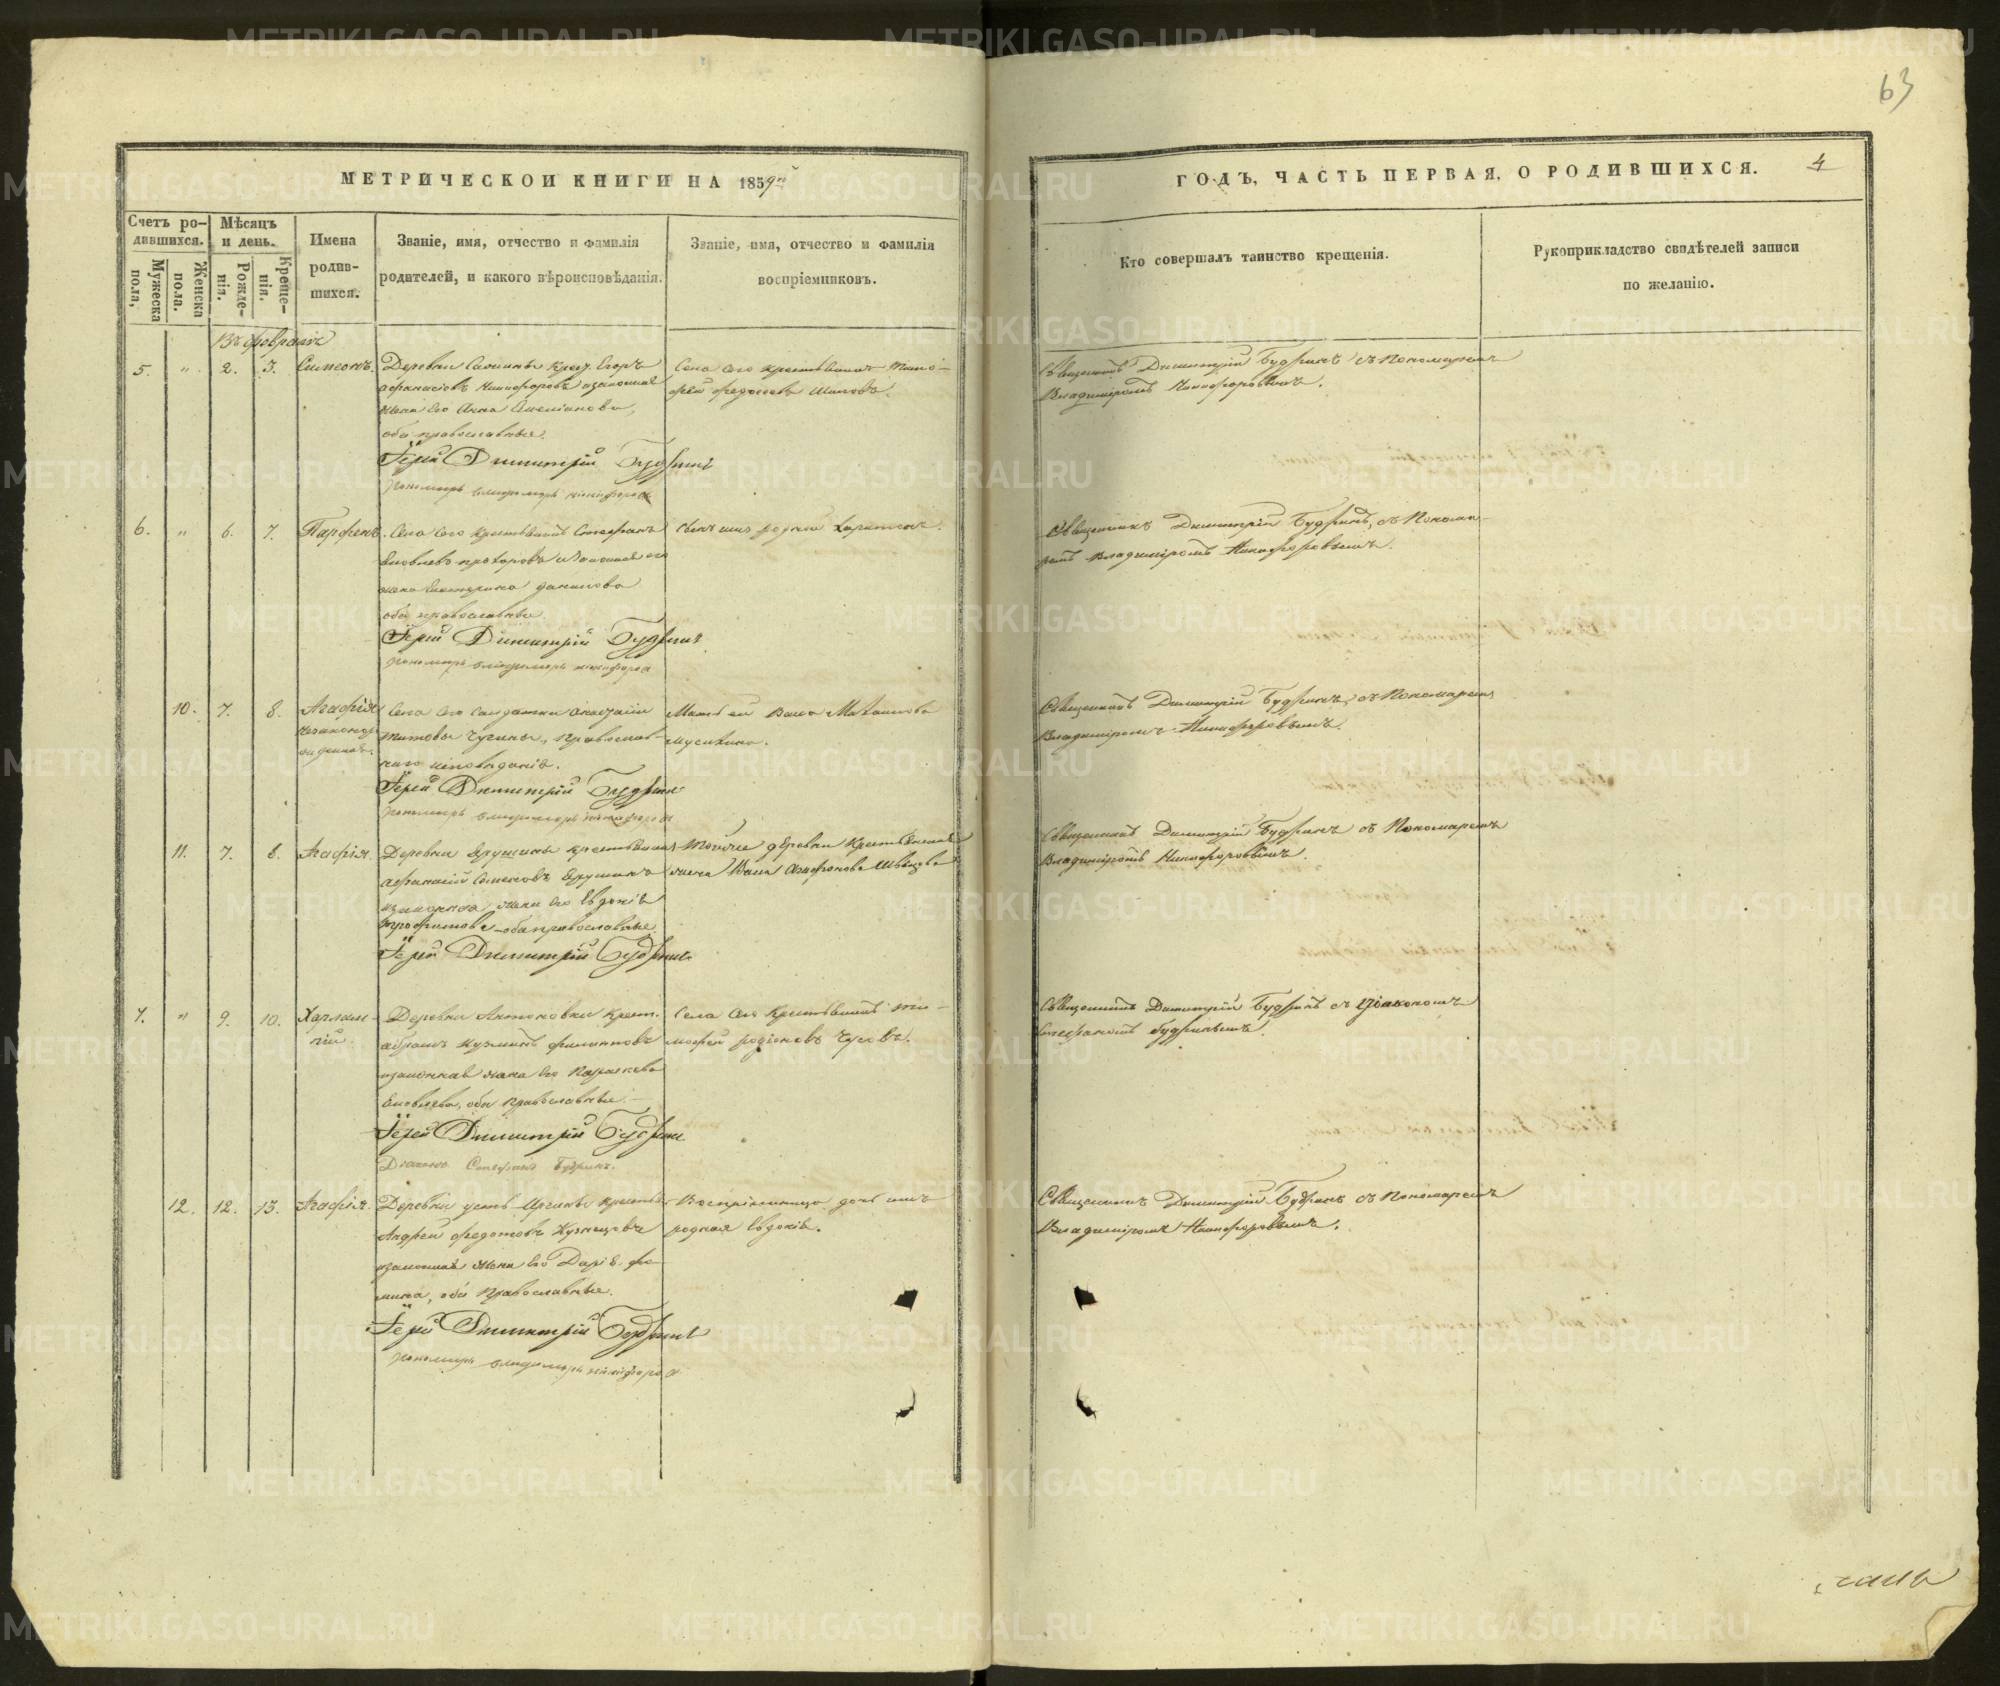 63
МЕТРИЧЕСКОЙ КНИГИ НА 1859й
ГОДЪ, ЧАСТЬ ПЕРВАЯ, О РОДИВШИХСЯ. 4
Счетъ родившихся.
Мужеска пола,
Женска пола.
Мѣсяцъ и день.
Рожденія.
Крещенія.
Имена родившихся.
Званіе, имя, отчество и фамилія
родителей, и какого вѣроисповѣданія.
Званіе, имя, отчество и фамилія
воспріемниковъ.
Кто совершалъ таинство крещенія.
Рукоприкладство свидѣтелей записи
по желанію.
Въ февралѣ
5. " 2. 3. Симеонъ.
Деревни Крест. Егоръ
Афанасіевъ Никифоровъ и законная
жена его Анна Емеліанова,
оба православные.
Іерей Димитрій Будринъ
Пономарь Владимиръ Никифоровъ
Села сего крестьянинъ Тимо-
фей Федосеевъ
Священникъ Димитрій Будринъ съ Пономаремъ
Владиміромъ Никифоровымъ.
6. " 6. 7. Парфенъ.
Села сего Крестьянинъ Стефанъ
Яковлевъ Прохоровъ и Законная его
жена Екатерина Данилова
оба православные
Іерей Димитрій Будринъ
Пономарь Владимиръ Никифоровъ
Сынъ ихъ родной Харитонъ.
Священникъ Димитрій Будринъ, съ Понома-
ремъ Владиміромъ Никифоровымъ.
10. 7. 8. Агафія
незаконно-
рожденная.
Села сего солдатки Анастасіи
Титовы Чусины, Православ-
наго исповѣданія.
Іерей Димитрій Будринъ
Пономарь Владимиръ Никифоровъ
Мать ей Васса Михайлова
Мусихина.
Священникъ Димитрій Будринъ, съ Пономаремъ
Владиміромъ Никифоровымъ.
11. 7. 8. Агафія.
Деревни Ярушины крестьянинъ
Афанасій Семеновъ Ярушинъ
и законная жена его Евдокія
Трофимова оба православные
Іерей Димитрій Будринъ
Тойже деревни Крестьянская
жена Васса Агафонова Швецова
Священникъ Димитрій Будринъ съ Пономаремъ
Владиміромъ Никифоровымъ.
7. " 9. 10. Харлам-
пій.
Деревни Антоновки Крест.
Абрамъ Кузминъ Филипповъ
и законная жена его Параскева
Яковлева, оба Православные.
Іерей Димитрій Будринъ
Діаконъ Стефанъ Будринъ.
Села Сего Крестьянинъ Ти-
мофей Родіоновъ Чусовъ.
Священникъ Димитрій Будринъ съ Діакономъ
Стефаномъ Будринымъ.
12. 12. 13. Агафія.
Деревни Усть-Иргины Крестьян.
Андрей Федотовъ Кузнецовъ
и законная жена его Дарія Фо-
мина, оба Православные.
Іерей Димитрій Будринъ
Пономарь Владимиръ Никифоровъ
Воспріемница дочь ихъ
родная Евдокія.
Священникъ Димитрій Будринъ съ Пономаремъ
Владиміромъ Никифоровымъ.
METRIKI.GASO-URAL.RU